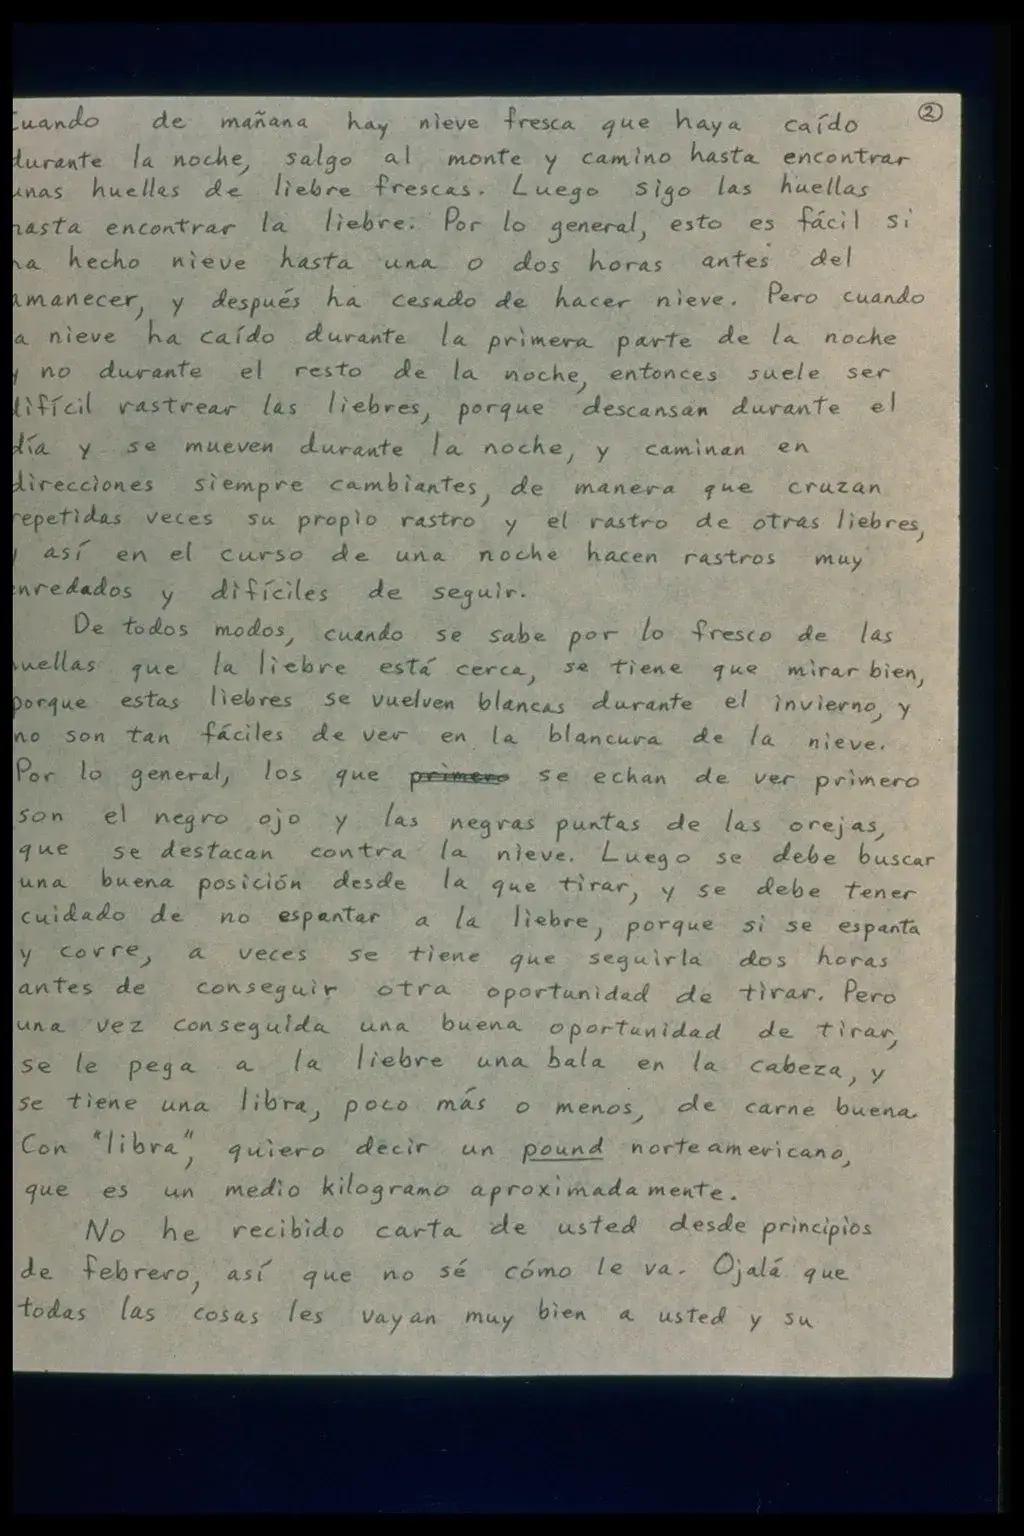 ②
Cuando de mañana hay nieve fresca que haya caído
durante la noche, salgo al monte y camino hasta encontrar
unas huellas de liebre frescas. Luego sigo las huellas
hasta encontrar la liebre. Por lo general, esto es fácil si
ha hecho nieve hasta una o dos horas antes del
amanecer, y después ha cesado de hacer nieve. Pero cuando
a nieve ha caído durante la primera parte de la noche
y no durante el resto de la noche, entonces suele ser
difícil rastrear las liebres, porque descansan durante el
día y se mueven durante la noche, y caminan en
direcciones siempre cambiantes, de manera que cruzan
repetidas veces su propio rastro y el rastro de otras liebres,
y así en el curso de una noche hacen rastros muy
enredados y difíciles de seguir.
De todos modos, cuando se sabe por lo fresco de las
huellas que la liebre está cerca, se tiene que mirar bien,
porque estas liebres se vuelven blancas durante el invierno, y
no son tan fáciles de ver en la blancura de la nieve.
Por lo general, los que primero se echan de ver primero
son el negro ojo y las negras puntas de las orejas,
que se destacan contra la nieve. Luego se debe buscar
una buena posición desde la que tirar, y se debe tener
cuidado de no espantar a la liebre, porque si se espanta
y corre, a veces se tiene que seguirla dos horas
antes de conseguir otra oportunidad de tirar. Pero
una vez conseguida una buena oportunidad de tirar,
se le pega a la liebre una bala en la cabeza, y
se tiene una libra, poco más o menos, de carne buena.
Con "libra", quiero decir un pound norteamericano,
que es un medio kilogramo aproximadamente.
No he recibido carta de usted desde principios
de febrero, así que no sé cómo le va. Ojalá que
todas las cosas les vayan muy bien a usted y su